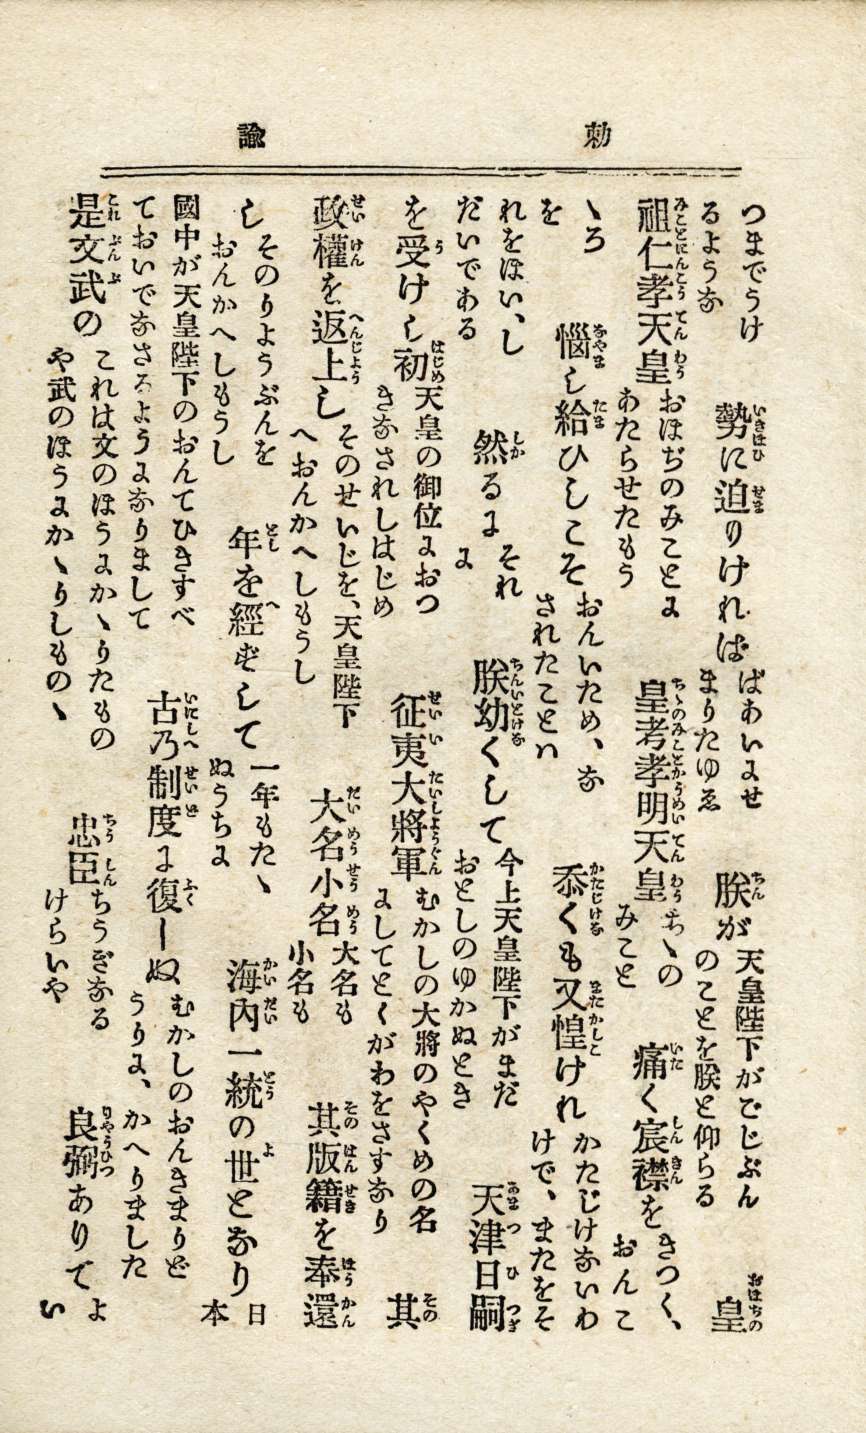 勅諭
つまでうけるような勢に迫りければばあいにせまりたゆゑ朕が天皇陛下がごじぶんのことを朕と仰らる皇
祖仁孝天皇おほぢのみことにあたらせたもう皇考孝明天皇ちゝのみこと痛く宸襟をきつく、おんこ
ゝろを惱し給ひしこそおんいため、なされたことハ忝くも又惶けれかたじけないわけで、またをそ
れをほい、しだいである然るにそれに朕幼くして今上天皇陛下がまだおとしのゆかぬとき天津日嗣
を受けし初天皇の御位におつきなされしはじめ征夷大將軍むかしの大將のやくめの名にしてとくがわをさすなり其
政權を返上しそのせいじを、天皇陛下へおんかへしもうし大名小名大名も小名も其版籍を奉還
しそのりようぶんをおんかへしもうし年を經ずして一年もたゝぬうちに海内一統の世となり日本
國中が天皇陛下のおんてひきすべておいでなさるようになりまして古乃制度に復しぬむかしのおんきまりどうりに、かへりました
是文武のこれは文のほうにかゝりたものや武のほうにかゝりしものゝ忠臣ちうぎなるけらいや良弼ありてよい